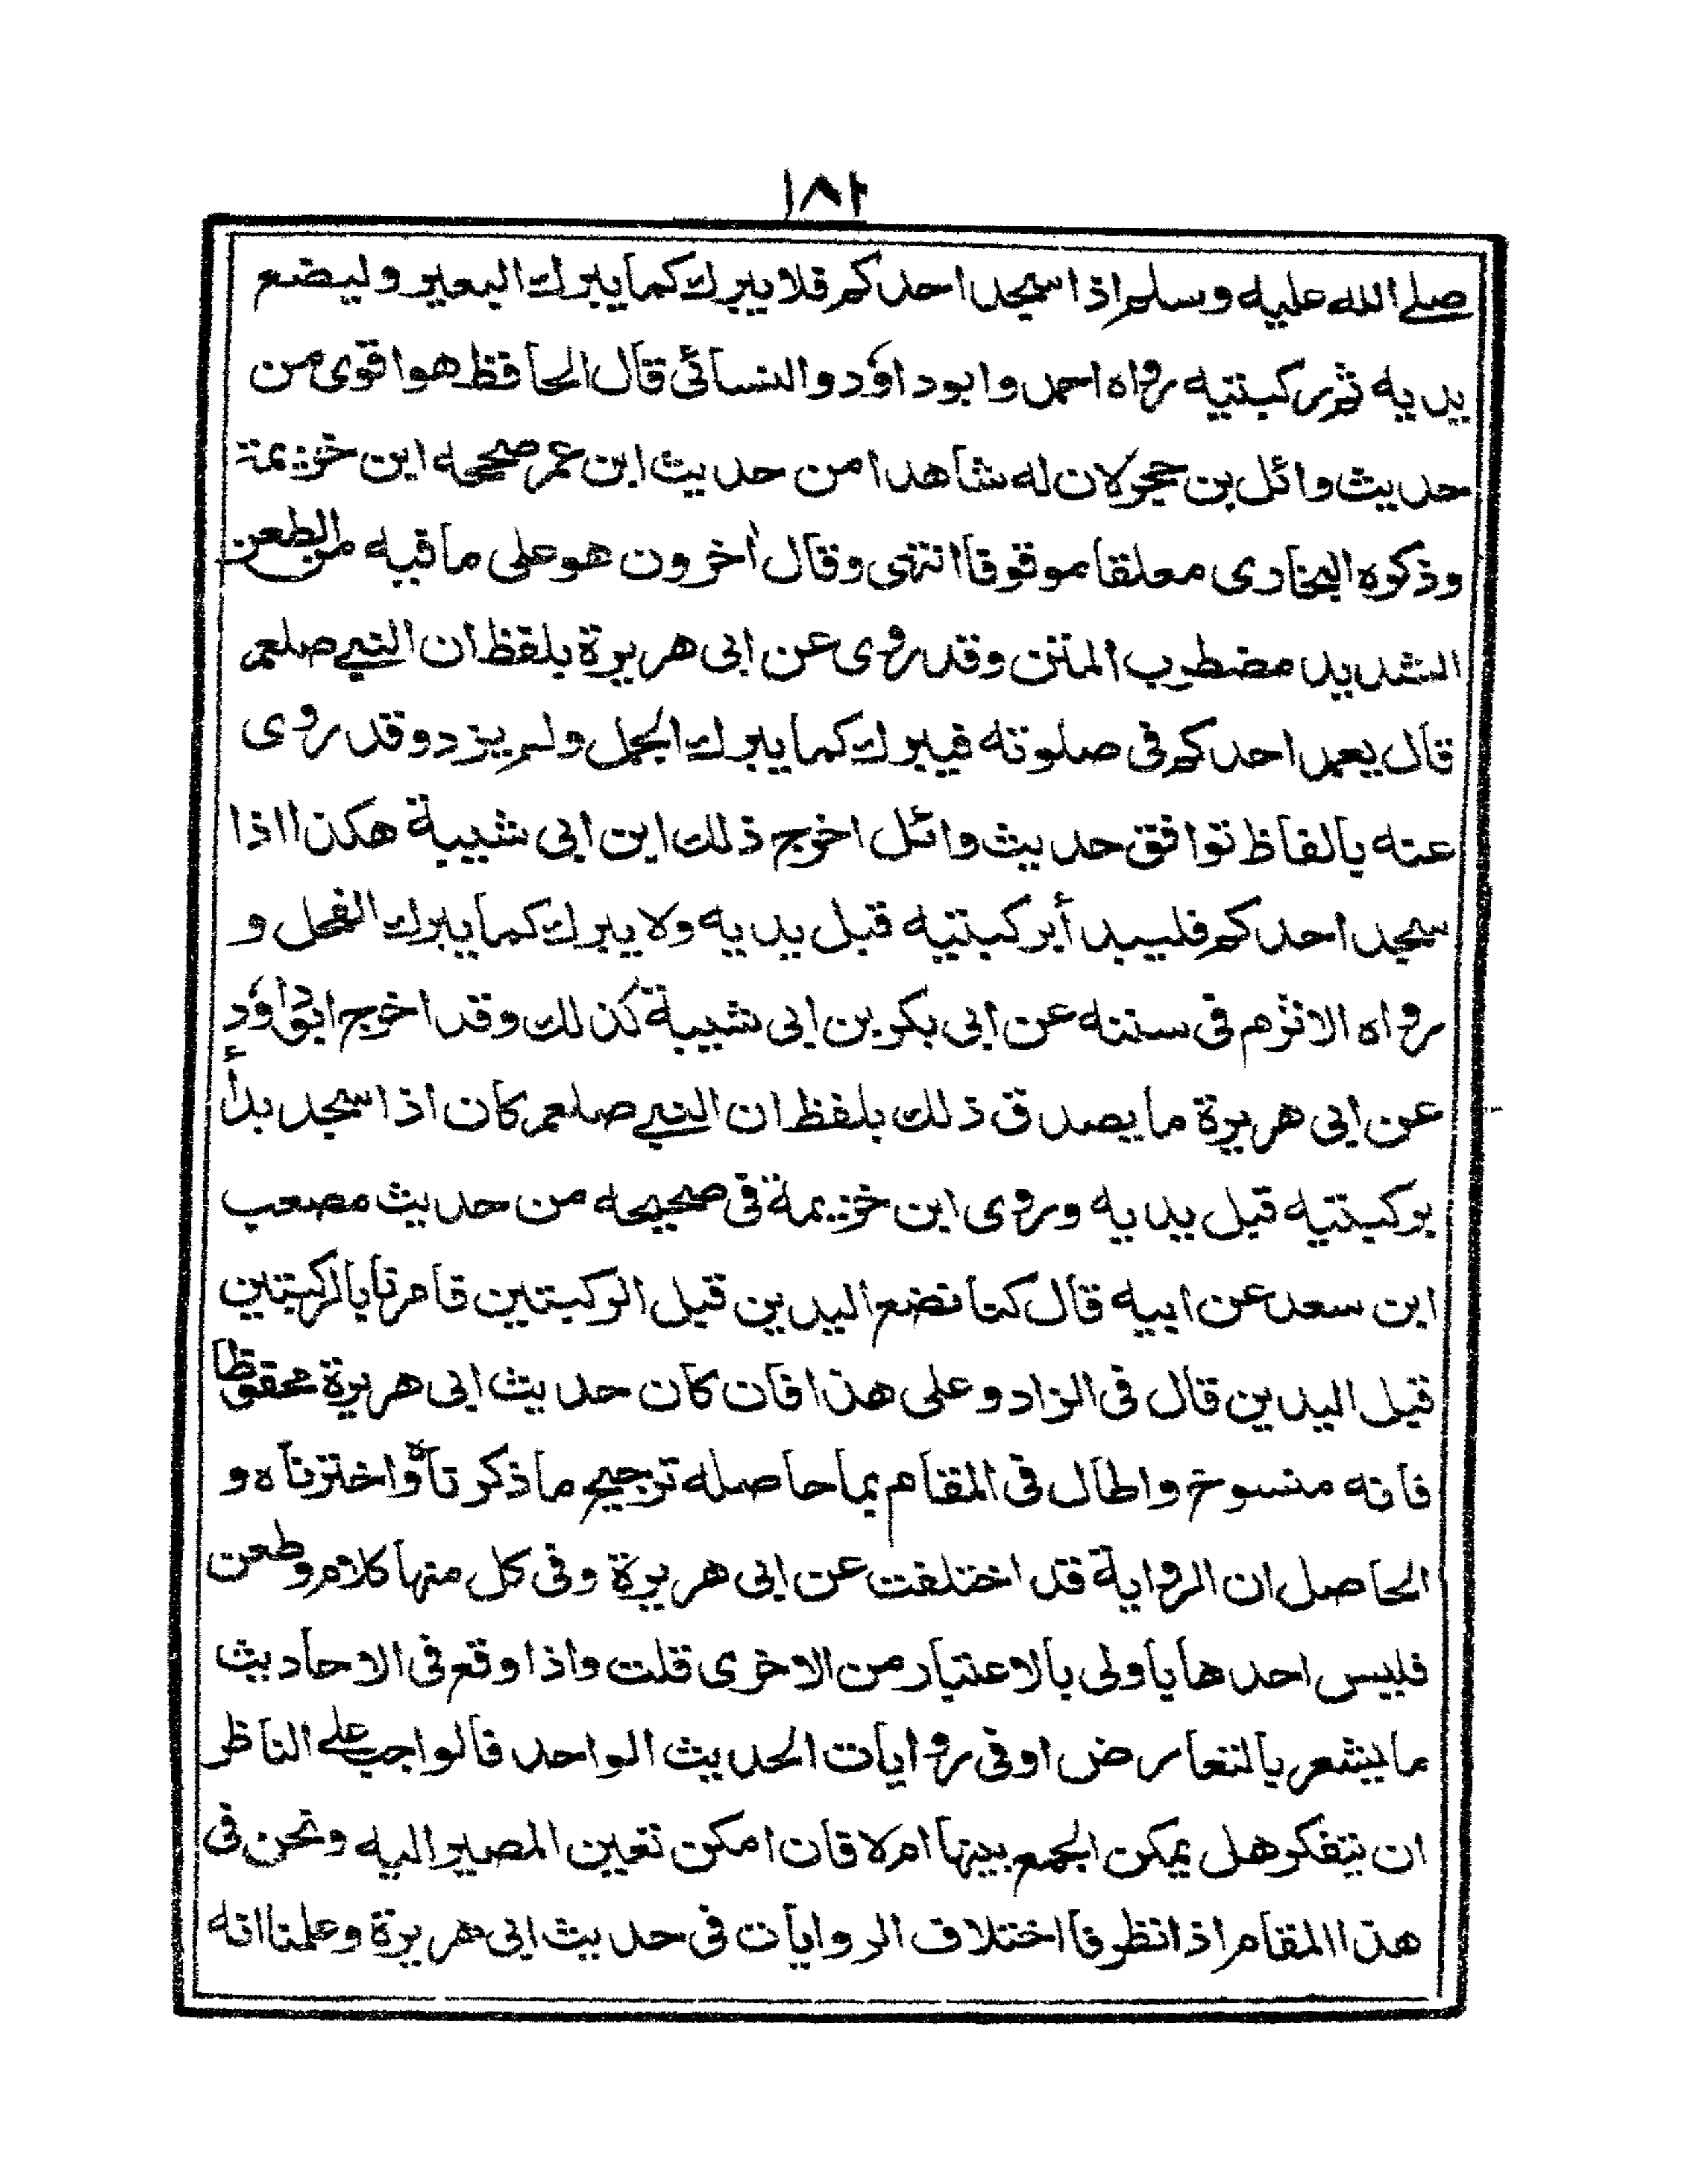 ١٨٢
صلے الله عليه وسلم اذا سجد احدكم فلا يبرك كما يبرك البعير وليضع
يديه ثم ركبتيه رواه احمد وابوداؤد والنسائى قال الحافظ هو اقوى من
حديث وائل بن حجر لان له شاهدا من حديث ابن عمر صححه ابن خزيمة
وذكره البخارى معلقا موقوفا انتهى وقال اخرون هو على ما فيه من الطعن
الشديد مضطرب المتن وقد روى عن ابى هريرة بلفظ ان النبي صلعم
قال يعمد احدكم فى صلوته فيبرك كما يبرك الجمل ولم يزد وقد روى
عنه بالفاظ توافق حديث وائل اخرج ذلك ابن ابى شيبة هكذا اذا
سجد احدكم فليبدأ بركبتيه قبل يديه ولا يبرك كما يبرك الفحل و
رواه الاثرم فى سننه عن ابى بكر بن ابى شيبة كذلك وقد اخرج ابوداؤد
عن ابى هريرة ما يصدق ذلك بلفظ ان النبي صلعم كان اذا سجد بدأ
بركبتيه قبل يديه وروى ابن خزيمة فى صحيحه من حديث مصعب
ابن سعد عن ابيه قال كنا نضع اليدين قبل الركبتين فامرنا بالركبتين
قبل اليدين قال فى الزاد وعلى هذا فان كان حديث ابى هريرة محفوظا
فانه منسوخ واطال فى المقام بما حاصله ترجيح ما ذكرناه واخترناه و
الحاصل ان الرواية قد اختلفت عن ابى هريرة وفى كل منها كلام وطعن
فليس احدها باولى بالاعتبار من الاخرى قلت واذا وقع فى الاحاديث
ما يشعر بالتعارض او فى روايات الحديث الواحد فالواجب على الناظر
ان يتفكر هل يمكن الجمع بينها ام لا فان امكن تعين المصير اليه ونحن فى
هذا المقام اذا نظرنا اختلاف الروايات فى حديث ابى هريرة وعلمنا انه